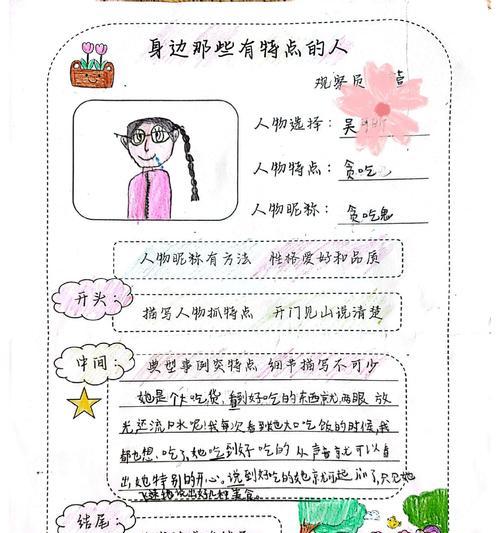 身边那些有特点的人
观察员
人物选择:吴
人物特点:贪吃
人物昵称:贪吃鬼
人物昵称有方法 性格爱好和品质
开头:
描写人物抓特点 开门见山说清楚
中间:
典型事例突特点 细节描写不可少
她是个大吃货,看到好吃的东西就两眼放
光,还流口水呢!我每次看到她大口吃饭的时候,我
都也想吃了,她吃到好吃的从声音就可以
出她特别的开心。说到好吃的她就可起了,只见她
飞速地说出好几种美食。
结尾: